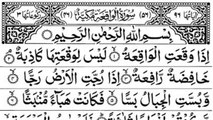 سُوْرَةُ الْوَاقِعَةِ مَكِّيَّةٌ
بِسْمِ اللّٰهِ الرَّحْمٰنِ الرَّحِيْمِ
اِذَا وَقَعَتِ الْوَاقِعَةُ ۙ لَيْسَ لِوَقْعَتِهَا كَاذِبَةٌ ۘ
خَافِضَةٌ رَّافِعَةٌ ۙ اِذَا رُجَّتِ الْاَرْضُ رَجًّا ۙ
وَّبُسَّتِ الْجِبَالُ بَسًّا ۙ فَكَانَتْ هَبَآءً مُّنْۢبَثًّا ۙ